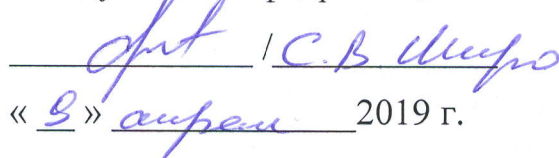 / С.В Широ
« 9 » апреля 2019 г.